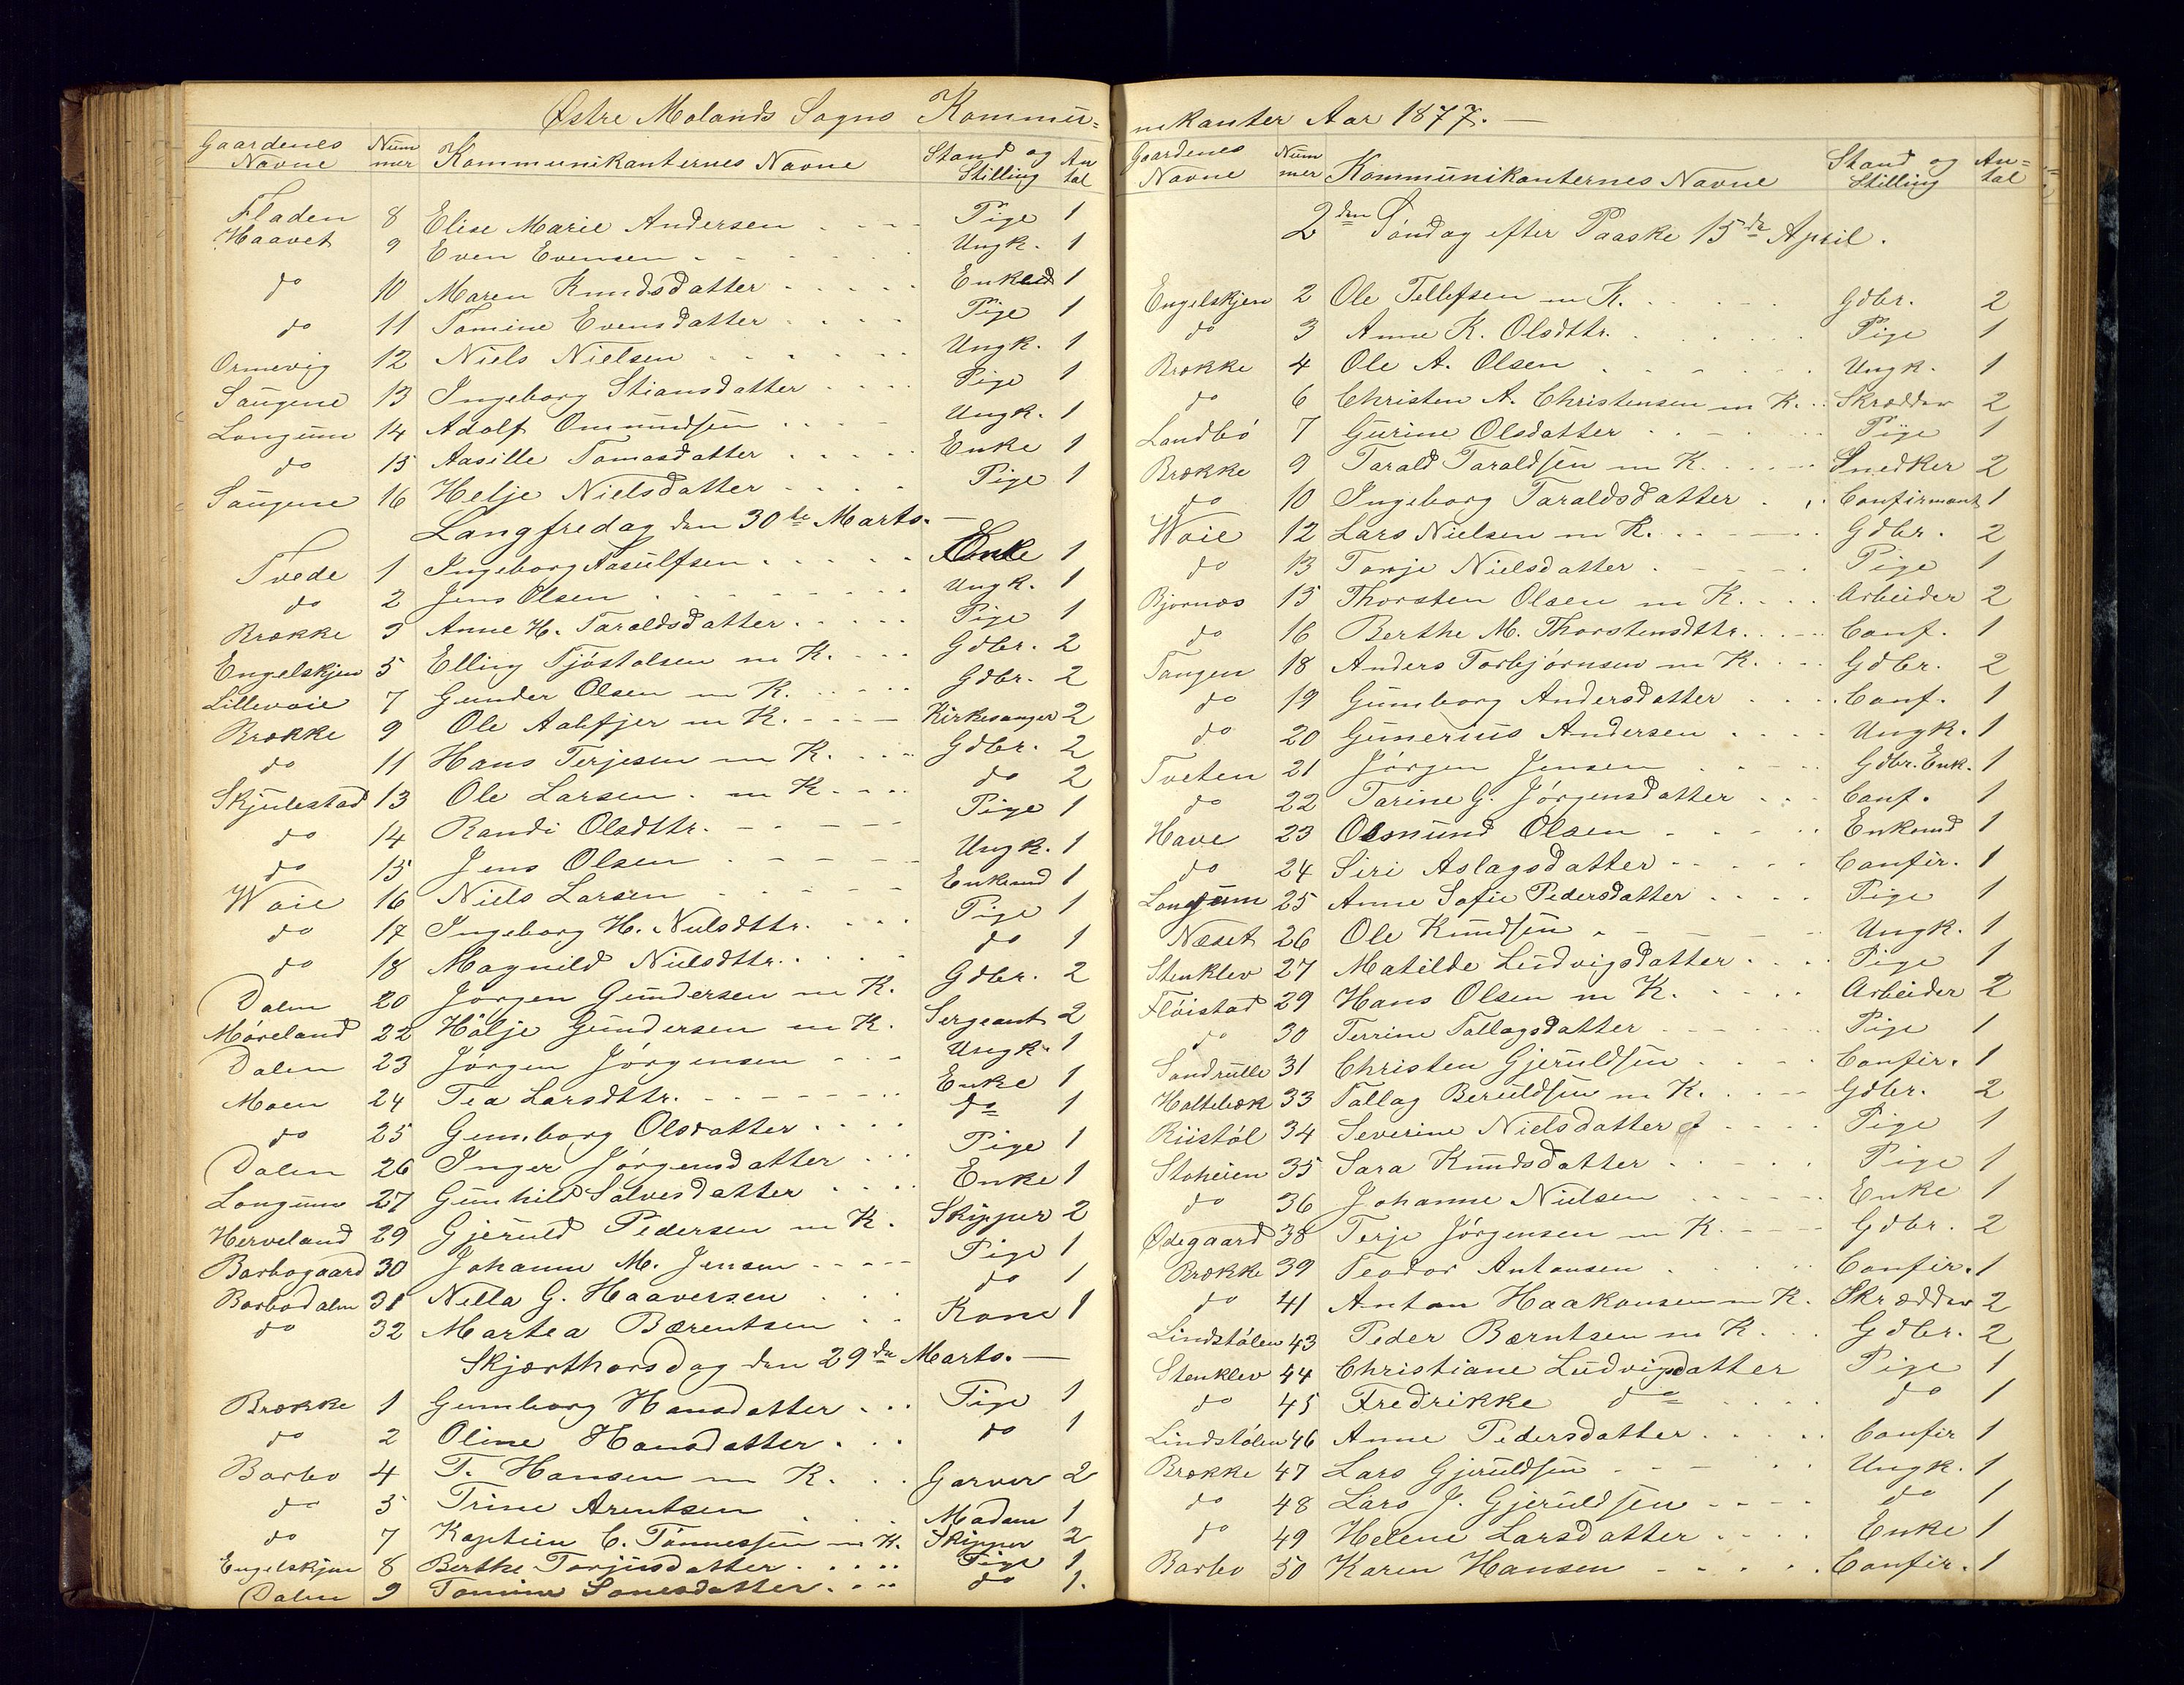 Østre Molands Sogns Kommu=
Gaardenes Navne Num mer Kommunikanternes Navne Stand og Stilling An tal
Fladen 8 Elise Marie Andersen Pige 1
Haavet 9 Even Evensen Ungk. 1
do 10 Maren Knudsdatter 1
do 11 Tomine Evensdatter Pige 1
Ormevig 12 Niels Nielsen Ungk. 1
Saugene 13 Ingeborg Stiansdatter Pige 1
Longum 14 Adolf Omundsen Ungk. 1
do 15 Aasille Tomasdatter Enke 1
Saugene 16 Helje Nielsdatter Pige 1
Langfredag den 30te Marts.
Tvede 1 Ingeborg Aasulfsen Enke 1
do 2 Jens Olsen Ungk. 1
Brække 3 Anne H. Taraldsdatter Pige 1
Engelskjen 5 Elling Tjöstolsen m K. Gdbr. 2
Lillevoie 7 Gunder Olsen m K. Gdbr. 2
Brække 9 Ole m K. Kirkesanger 2
do 11 Hans Terjesen m K. Gdbr. 2
Skjulestad 13 Ole Larsen m K do 2
do 14 Randi Olsdttr. Pige 1
do 15 Jens Olsen Ungk. 1
Woie 16 Niels Larsen Enkemd 1
do 17 Ingeborg H. Nielsdttr. Pige 1
do 18 Magnild Nielsdttr. do 1
Dalen 20 Jörgen Gundersen m K. Gdbr. 2
Möreland 22 Hölje Gundersen m K. Sergeant 2
Dalen 23 Jörgen Jörgensen Ungk. 1
Moen 24 Tea Larsdttr. Enke 1
do 25 Gunborg Olsdatter do 1
Dalen 26 Inger Jörgensdatter Pige 1
Longum 27 Gunhild Salvesdatter Enke 1
Herveland 29 Gjeruld Pedersen m K. Skipper 2
Barbogaard 30 Johanne M. Jensen Pige 1
Barbodalen 31 Nella G. Haaversen do 1
do 32 Martea Bærentsen Kone 1
Skjærthorsdag den 29de Marts.
Brække 1 Gunborg Hansdatter Pige 1
do 2 Oline Hansdatter do 1
Barbo 4 T. Hansen m K. Garver 2
do 5 Trine Arentsen Madam 1
do 7 Kaptein C. Tönnessen m K. Skipper 2
Engelskjen 8 Berthe Torjusdatter Pige 1
Dalen 9 Tomine do 1.
nikanter Aar 1877.
Gaardenes Navne Num mer Kommunikanternes Navne Stand og Stilling An= tal
2den Söndag efter Paaske 15de April.
Engelskjen 2 Ole Tellefsen m K. Gdbr. 2
do 3 Anne K. Olsdttr. Pige 1
Brække 4 Ole A. Olsen Ungk. 1
do 6 Christen A. Christensen m K. Skrædder 2
Landbö 7 Gurine Olsdatter Pige 1
Brække 9 Tarald Taraldsen m K. Snedker 2
do 10 Ingeborg Taraldsdatter Confirmant 1
Woie 12 Lars Nielsen m K. Gdbr. 2
do 13 Tonje Nielsdatter Pige 1
Bjornæs 15 Thorsten Olsen m K. Arbeider 2
do 16 Berthe M. Thorstensdttr. Conf. 1
Tangen 18 Anders Torbjörnsen m K. Gdbr. 2
do 19 Gunborg Andersdatter Conf. 1
do 20 Gunerius Andersen Ungk. 1
Tveten 21 Jörgen Jensen Gdbr. Enk. 1
do 22 Tarine G. Jörgensdatter Conf. 1
Have 23 Osmund Olsen Enkemd 1
do 24 Siri Aslagsdatter Confir. 1
Longum 25 Anne Sofie Pedersdatter Pige 1
Næset 26 Ole Knudsen Ungk. 1
Stenklev 27 Matilde Ludvigsdatter Pige 1
Flöistad 29 Hans Olsen m K. Arbeider 2
do 30 Terrine Tallagsdatter Pige 1
Sandrulle 31 Christen Gjeruldsen Confir. 1
Holtebæk 33 Tallag Beruldsen m K. Gdbr. 2
Riistöl 34 Severine Nielsdatter Pige 1
Stoheien 35 Sara Knudsdatter Pige 1
do 36 Johanne Nielsen Enke 1
Ødegaard 38 Terje Jörgensen m K. Gdbr. 2
Brække 39 Teodor Antonsen Confir. 1
do 41 Anton Haakonsen m K. Skrædder 2
Lindstölen 43 Peder Bærntsen m K Gdbr. 2
Stenklev 44 Christiane Ludvigsdatter Pige 1
do 45 Fredrikke do do 1
Lindstölen 46 Anne Pedersdatter Confir 1
Brække 47 Lars Gjeruldsen Ungk. 1
do 48 Lars J. Gjeruldsen do 1
do 49 Helene Larsdatter Enke 1
Barbo 50 Karen Hansen Confir. 1